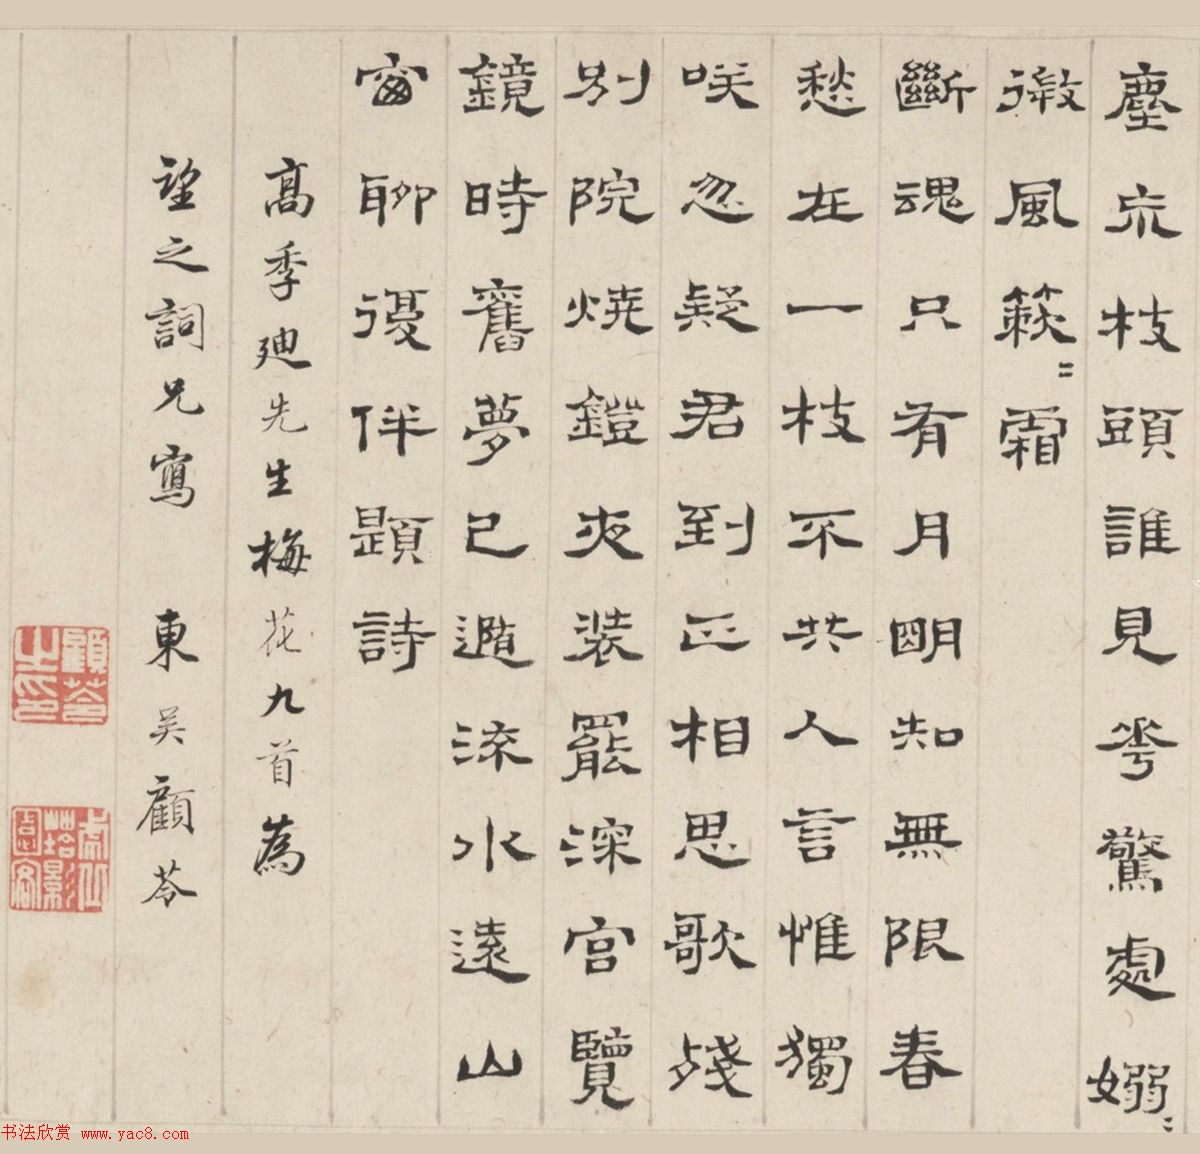 塵宂枝頭誰見花驚處嫋〻
微風簌〻霜
斷魂只有月明知無限春
愁在一枝不共人言惟獨
咲忽疑君到正相思歌殘
別院燒鐙夜装罷深宮覽
鏡時舊夢已遁流水遠山
窗聊復伴題詩
高季廸先生梅花九首為
望之詞兄寫 東吳顧苓
顧苓之印
塔影園客
书法欣赏 www.yac8.com